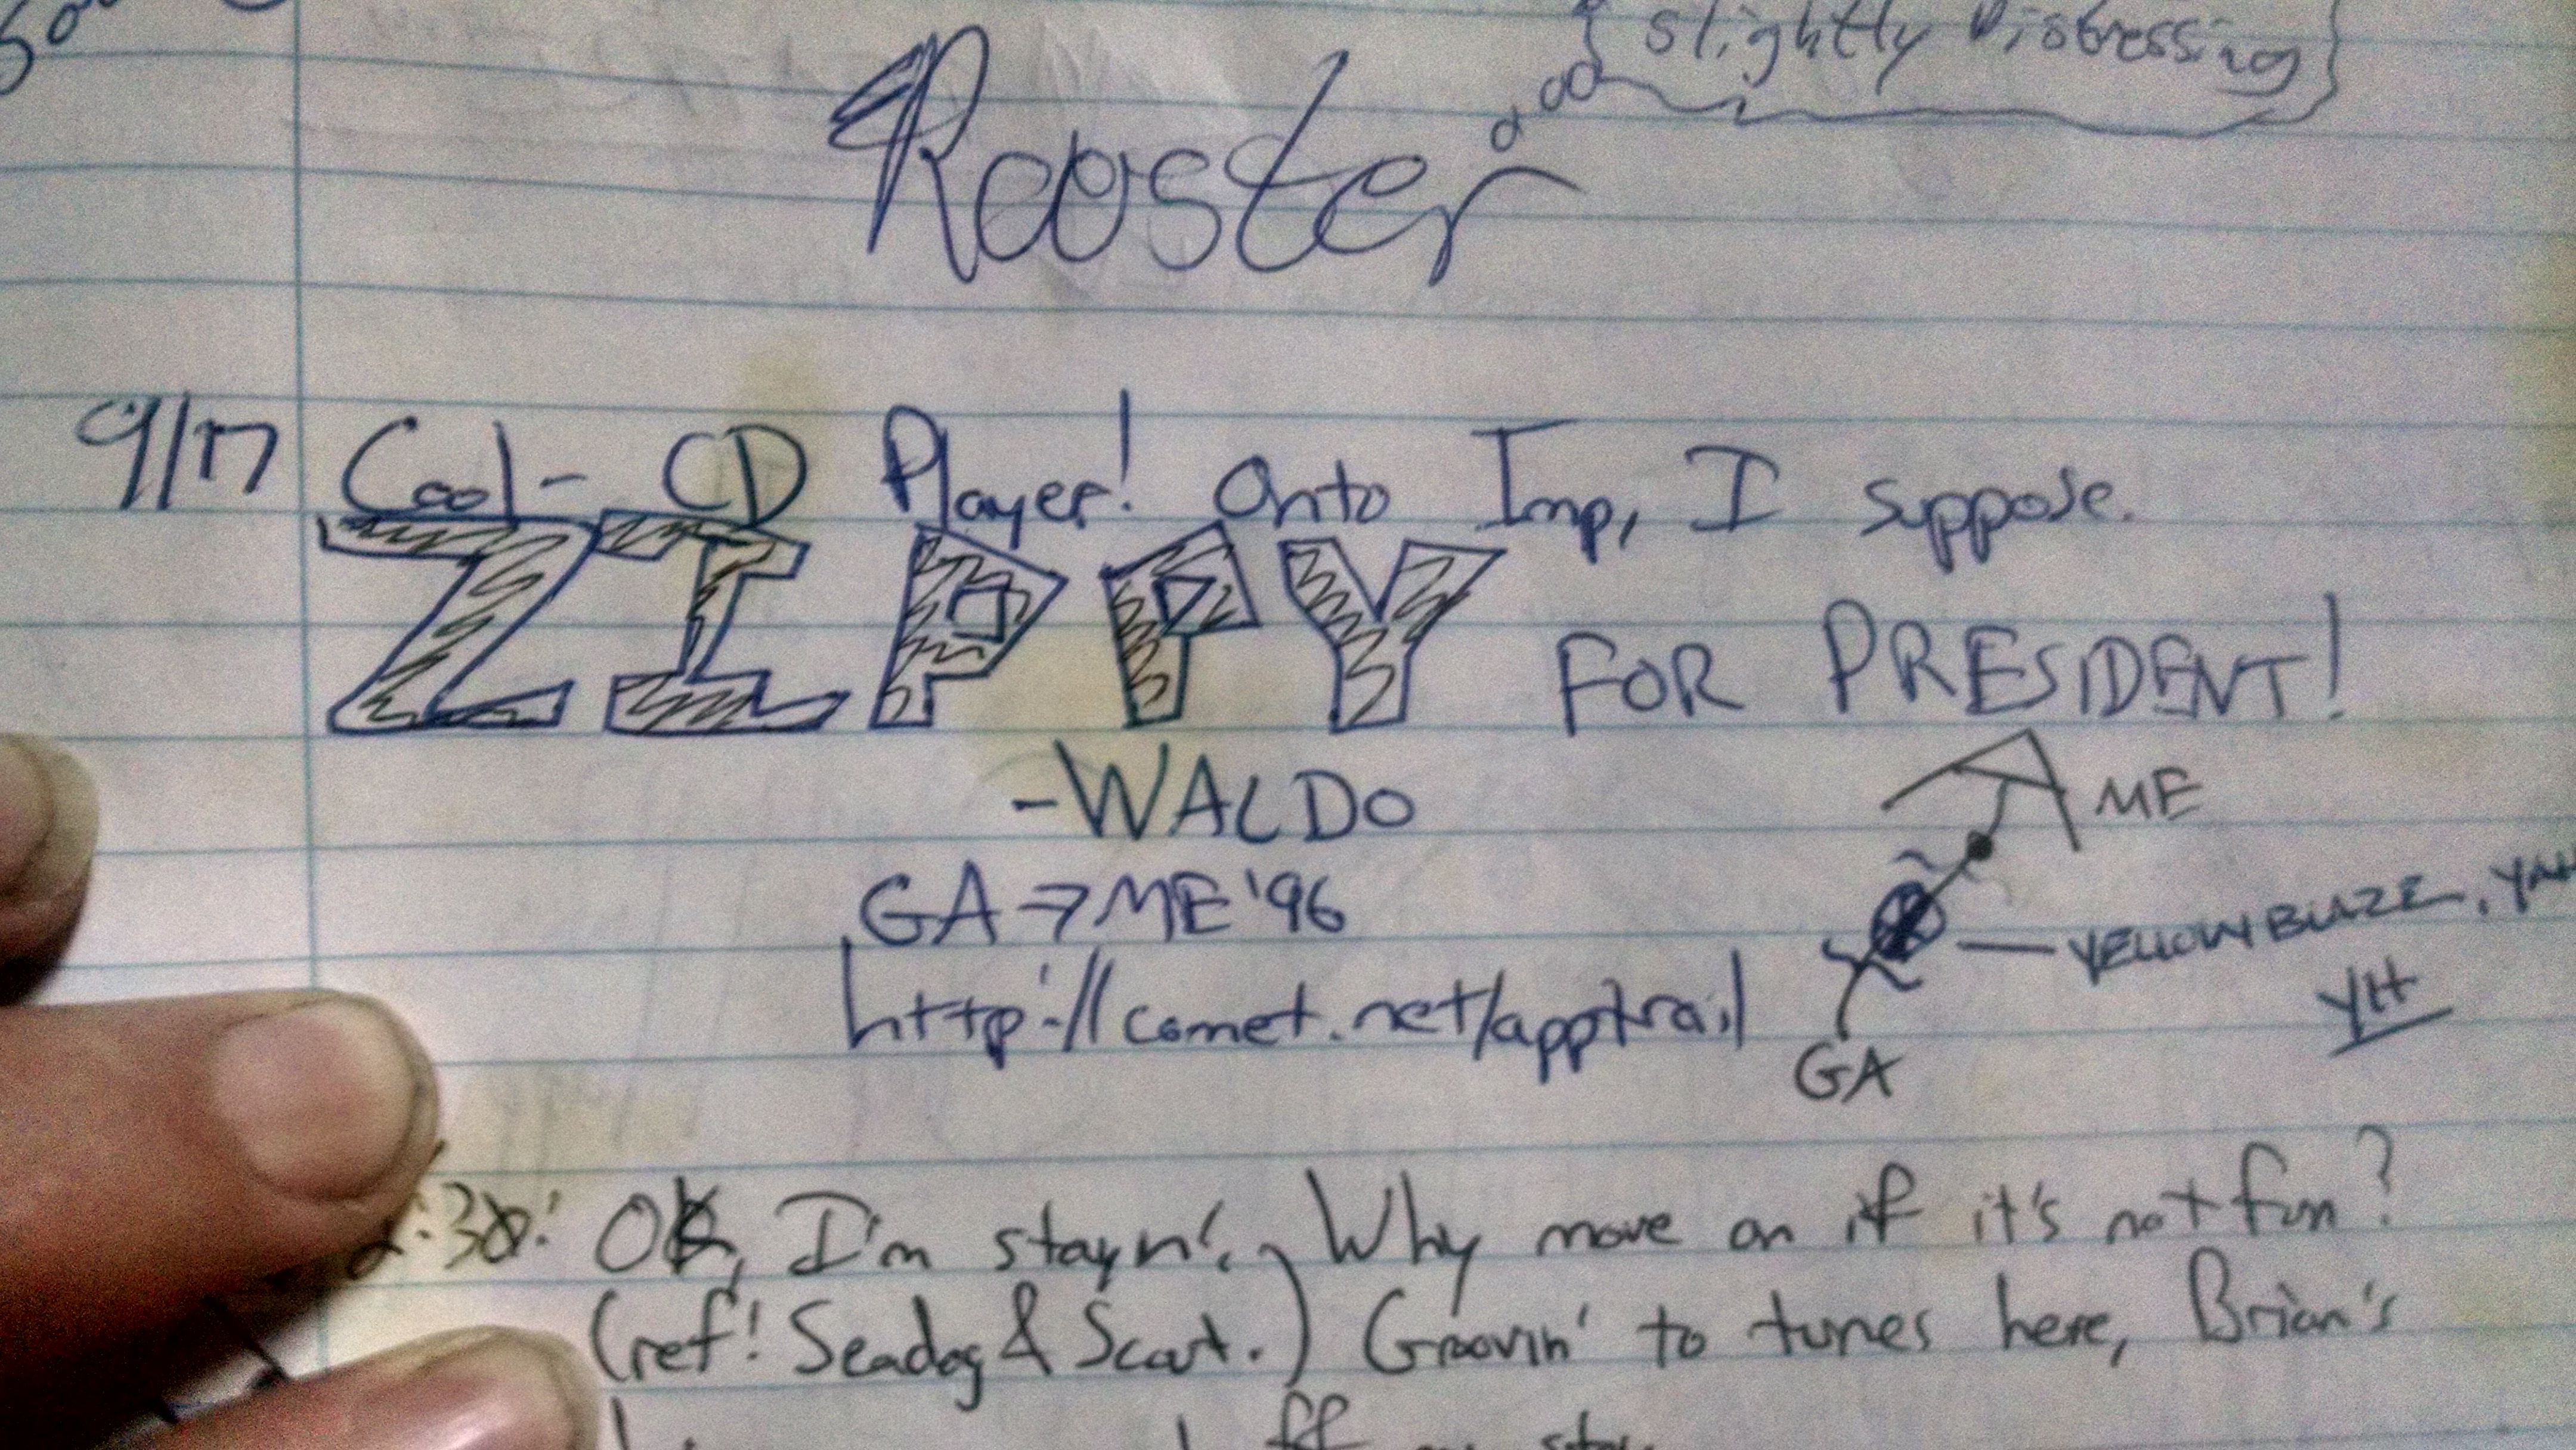 slightly Distressing
Rooster
9/17 Cool - CD Player! Onto Imp, I suppose.
ZIPPY FOR PRESIDENT!
-WALDO
ME
GA → ME '96
YELLOW BLAZE,
YH
http://comet.net/apptrail
GA
:30: OK, I'm stayn'. Why move on if it's not fun?
(ref: Seadog & Scout.) Groovin' to tunes here, Brian's